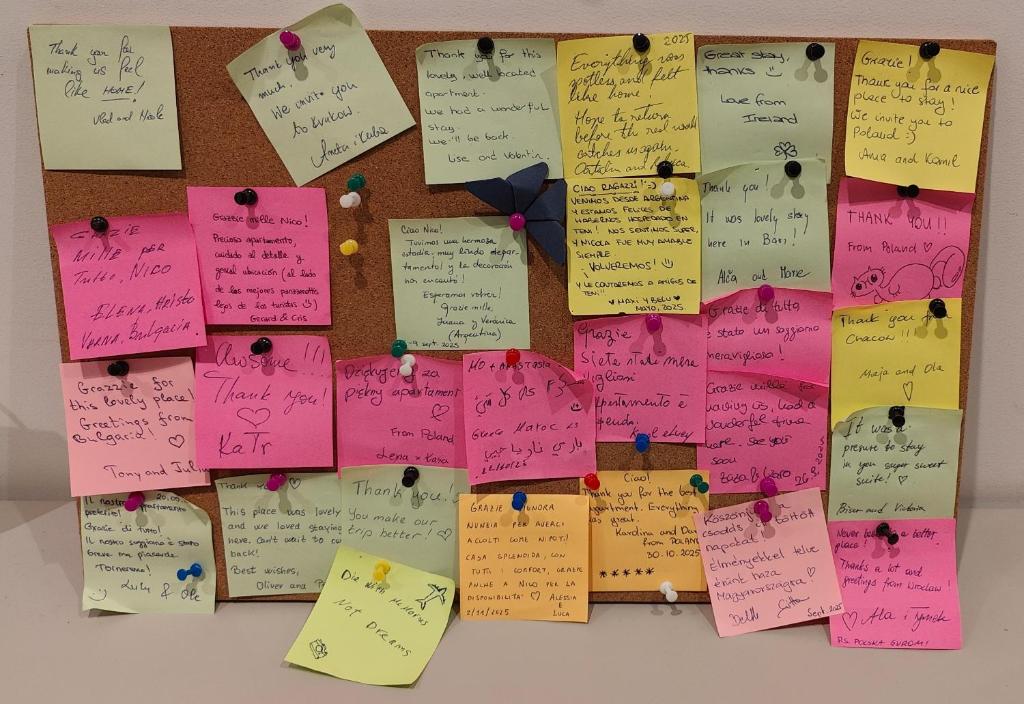 Thank you for
making us feel
like HOME!
Vlad and
Thank you very
much.
We invite you
to Krakow.
Aneta i Kuba
Thank you for this
lovely, well located
apartment.
We had a wonderful
stay.
We'll be back.
Lise and Valentin.
2025
Everything was
spotless and felt
like home.
Hope to return
before the real world
catches us again.
Catalin and
Great stay,
thanks
Love from
Ireland
Grazie!
Thank you for a nice
place to stay!
We invite you to
Poland :)
Ania and Kamil
GRAZIE
MILLE PER
TUTTO, NICO
ELENA, Hristo
Varna, Bulgaria.
Grazzie mille Nico!
Precioso apartamento,
cuidado al detalle y
genial ubicación (al lado
de los mejores panzerottis
lejos de los turistas
Gerard & Cris
Ciao Nico!
Tuvimos una hermosa
estadía. muy lindo depar-
tamento! y la decoración
nos encantó!
Esperamos volver!
Grazie mille,
Juana y Verónica
(Argentina)
-9 sept. 2025
CIAO RAGAZZI! :-)
VENIMOS DESDE ARGENTINA
Y ESTAMOS FELICES DE
HABERNOS HOSPEDADO EN
TENI! NOS SENTIMOS SUPER,
Y NICOLA FUE MUY AMABLE
SIEMPRE.
¡VOLVEREMOS!
Y LE CONTAREMOS A AMIGOS DE
TENI!!
♥ MAXI Y BELU ♥
MAYO, 2025
Thank you!
It was lovely stay
here in Bari!
Alća and
THANK YOU!!
From Poland ♡
Grazzie for
this lovely place!
Greetings from
Bulgaria! ♡
Tony and
Awsome!!!
Thank you!
♡
KaTr
Dziękuję za
piękny apartament
♡
From Poland
Lena + Kasia
MO + ANASTASIA
22/10/25
Grazie
Siete state
Appartamento è
Grazie di tutto
è stato un soggiorno
meraviglioso!
Grazie mille for
having us, had a
wonderful time
here. See you
soon
2025
Thank you from
Cracow!!!
Maja and Ola
♡
It was a
to stay
in you super sweet
suite! ♡
and Victoria
Il nostro appartamento 20.09
preferito!
Grazie di tutto!
Il nostro soggiorno è stato
breve ma piacevole.
Torneremo!
Lulu & Ole
Thank you ♡
This place was lovely
and we loved staying
here. Can't wait to co
back!
Best wishes,
Oliver and
Thank you!
You make our
trip better! ♡
Die with Memories
Not Dreams
GRAZIE SIGNORA
NUNZIA PER AVERCI
ACCOLTI COME NIPOTI!
CASA SPLENDIDA, CON
TUTTI I CONFORT, GRAZIE
ANCHE A NICO PER LA
DISPONIBILITA' ♡ ALESSIA
E
LUCA
2/11/2025
Ciao!
Thank you for the best
apartment. Everything
was great.
Karolina and
from POLAND
30.10.2025
*****
Köszönjük a
csodás itt töltött
napokat!
Élményekkel telve
érünk haza
Magyarországra! ♡
Sept. 2025
Never been a better
place!
Thanks a lot and
greetings from Wrocław!
♡ Ala i Tymek
PS. POLSKA GUROM!